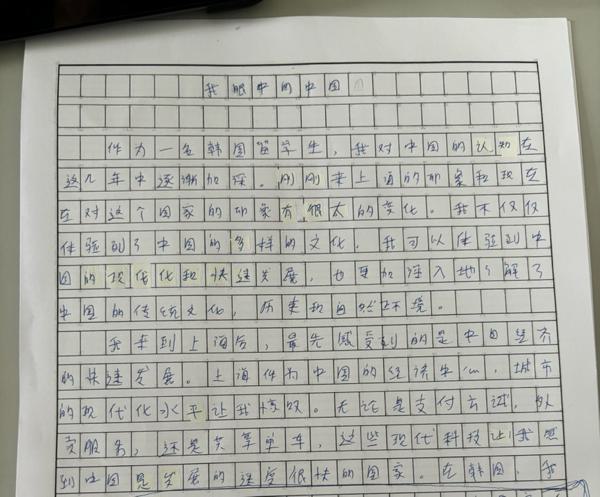 我眼中的中国
作为一名韩国留学生，我对中国的认知在
这几年中逐渐加深。刚刚来上海的印象和现在
在对这个国家的印象有很大的变化。我不仅仅
体验到了中国的多样的文化，我可以体验到中
国的现代化和快速发展，也更加深入地了解了
中国的传统文化，历史和自然环境。
我来到上海后，最先感受到的是中国经济
的快速发展。上海作为中国的经济中心，城市
的现代化水平让我惊叹。无论是支付方式，外
卖服务，还是共享单车，这些现代科技让我感
到中国是发展的速度很快的国家。在韩国，我